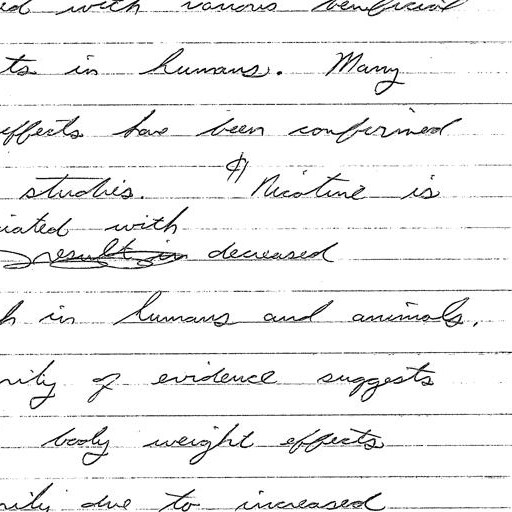 ed with various beneficial
ts in humans. Many
effects have been confirmed
studies. ¶ Nicotine is
iated with
result in decreased
h in humans and animals.
rity of evidence suggests
body weight effects
rily due to increased